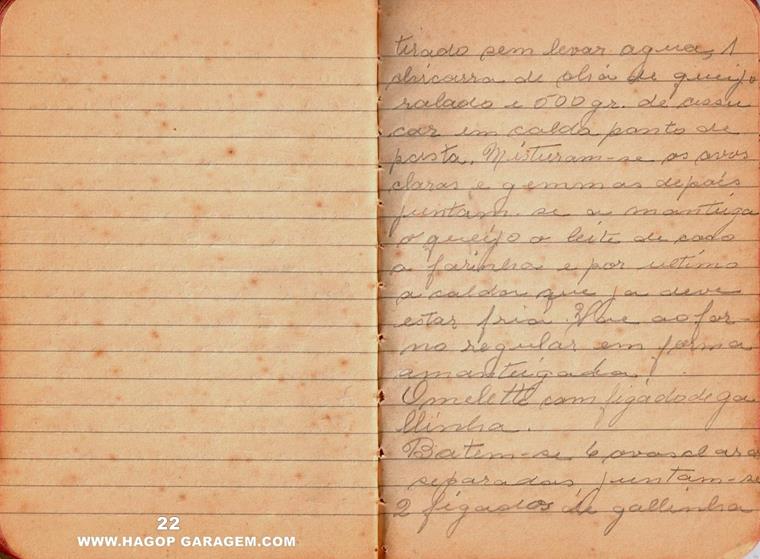 22
WWW.HAGOP GARAGEM.COM
tirado sem levar agua, 1
chicarra de chá de queijo
ralado e 500 gr. de assu
car em calda ponto de
pasta. Misturam-se os ovos
claras e gemmas depois
juntam-se a manteiga
o queijo o leite de coco
a farinha e por ultimo
a calda que ja deve
estar fria. Vae ao for-
no regular em forma
amanteigada.
Omelette com figado de ga
llinha.
Batem-se 6 ovos claras
separadas juntam-se
2 figados de gallinha